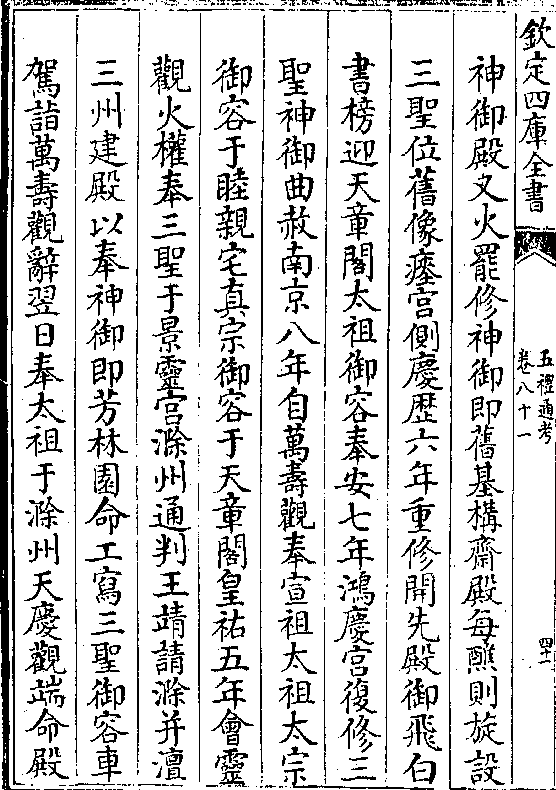 欽定四庫全書
五禮通考
卷八十一
四十一
神御殿又火罷修神御即舊基構齋殿每醮則旋設
三聖位舊像瘞宫側慶歴六年重修開先殿御飛白
書榜迎天章閣太祖御容奉安七年鴻慶宫復修三
聖神御曲赦南京八年自萬壽觀奉宣祖太祖太宗
御容于睦親宅真宗御容于天章閣皇祐五年會靈
觀火權奉三聖于景靈宫滁州通判王靖請滁并澶
三州建殿以奉神御即芳林園命工寫三聖御容車
駕詣萬壽觀辭翌日奉太祖于滁州天慶觀端命殿